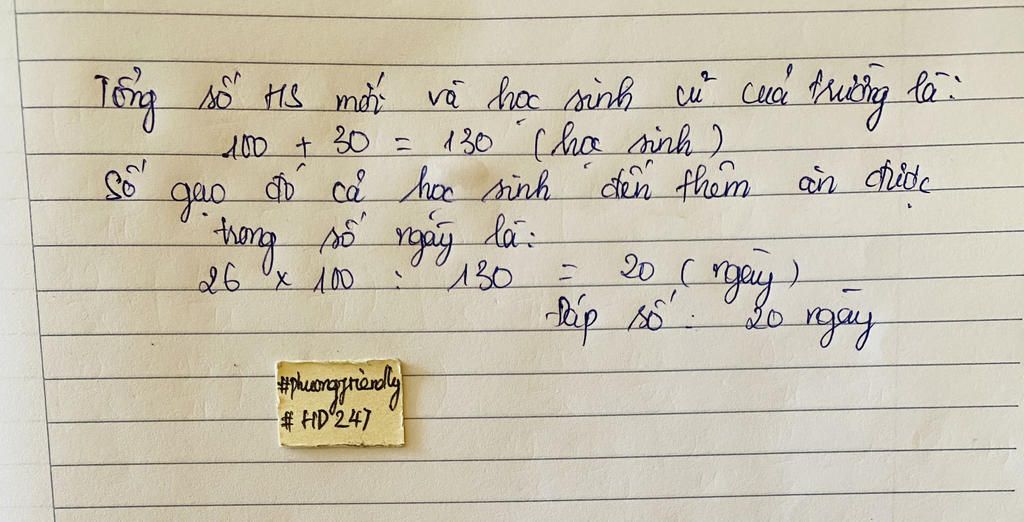 Tổng số HS mới và học sinh cũ cuả trường là:
100 + 30 = 130 (học sinh)
Số gạo đó cả học sinh đến thêm ăn được
trong số ngày là:
26 x 100 : 130 = 20 (ngày)
Đáp số: 20 ngày
#phuongfriendly
# HD 247